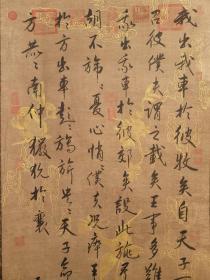 我出我車於彼牧矣自天子
召彼僕夫謂之載矣王事多難
我出我車於彼郊矣設此旐
胡不旆〻憂心悄〻僕夫況瘁王
於方出車彭〻旂旐央〻天子命
方赫〻南仲玁狁於襄